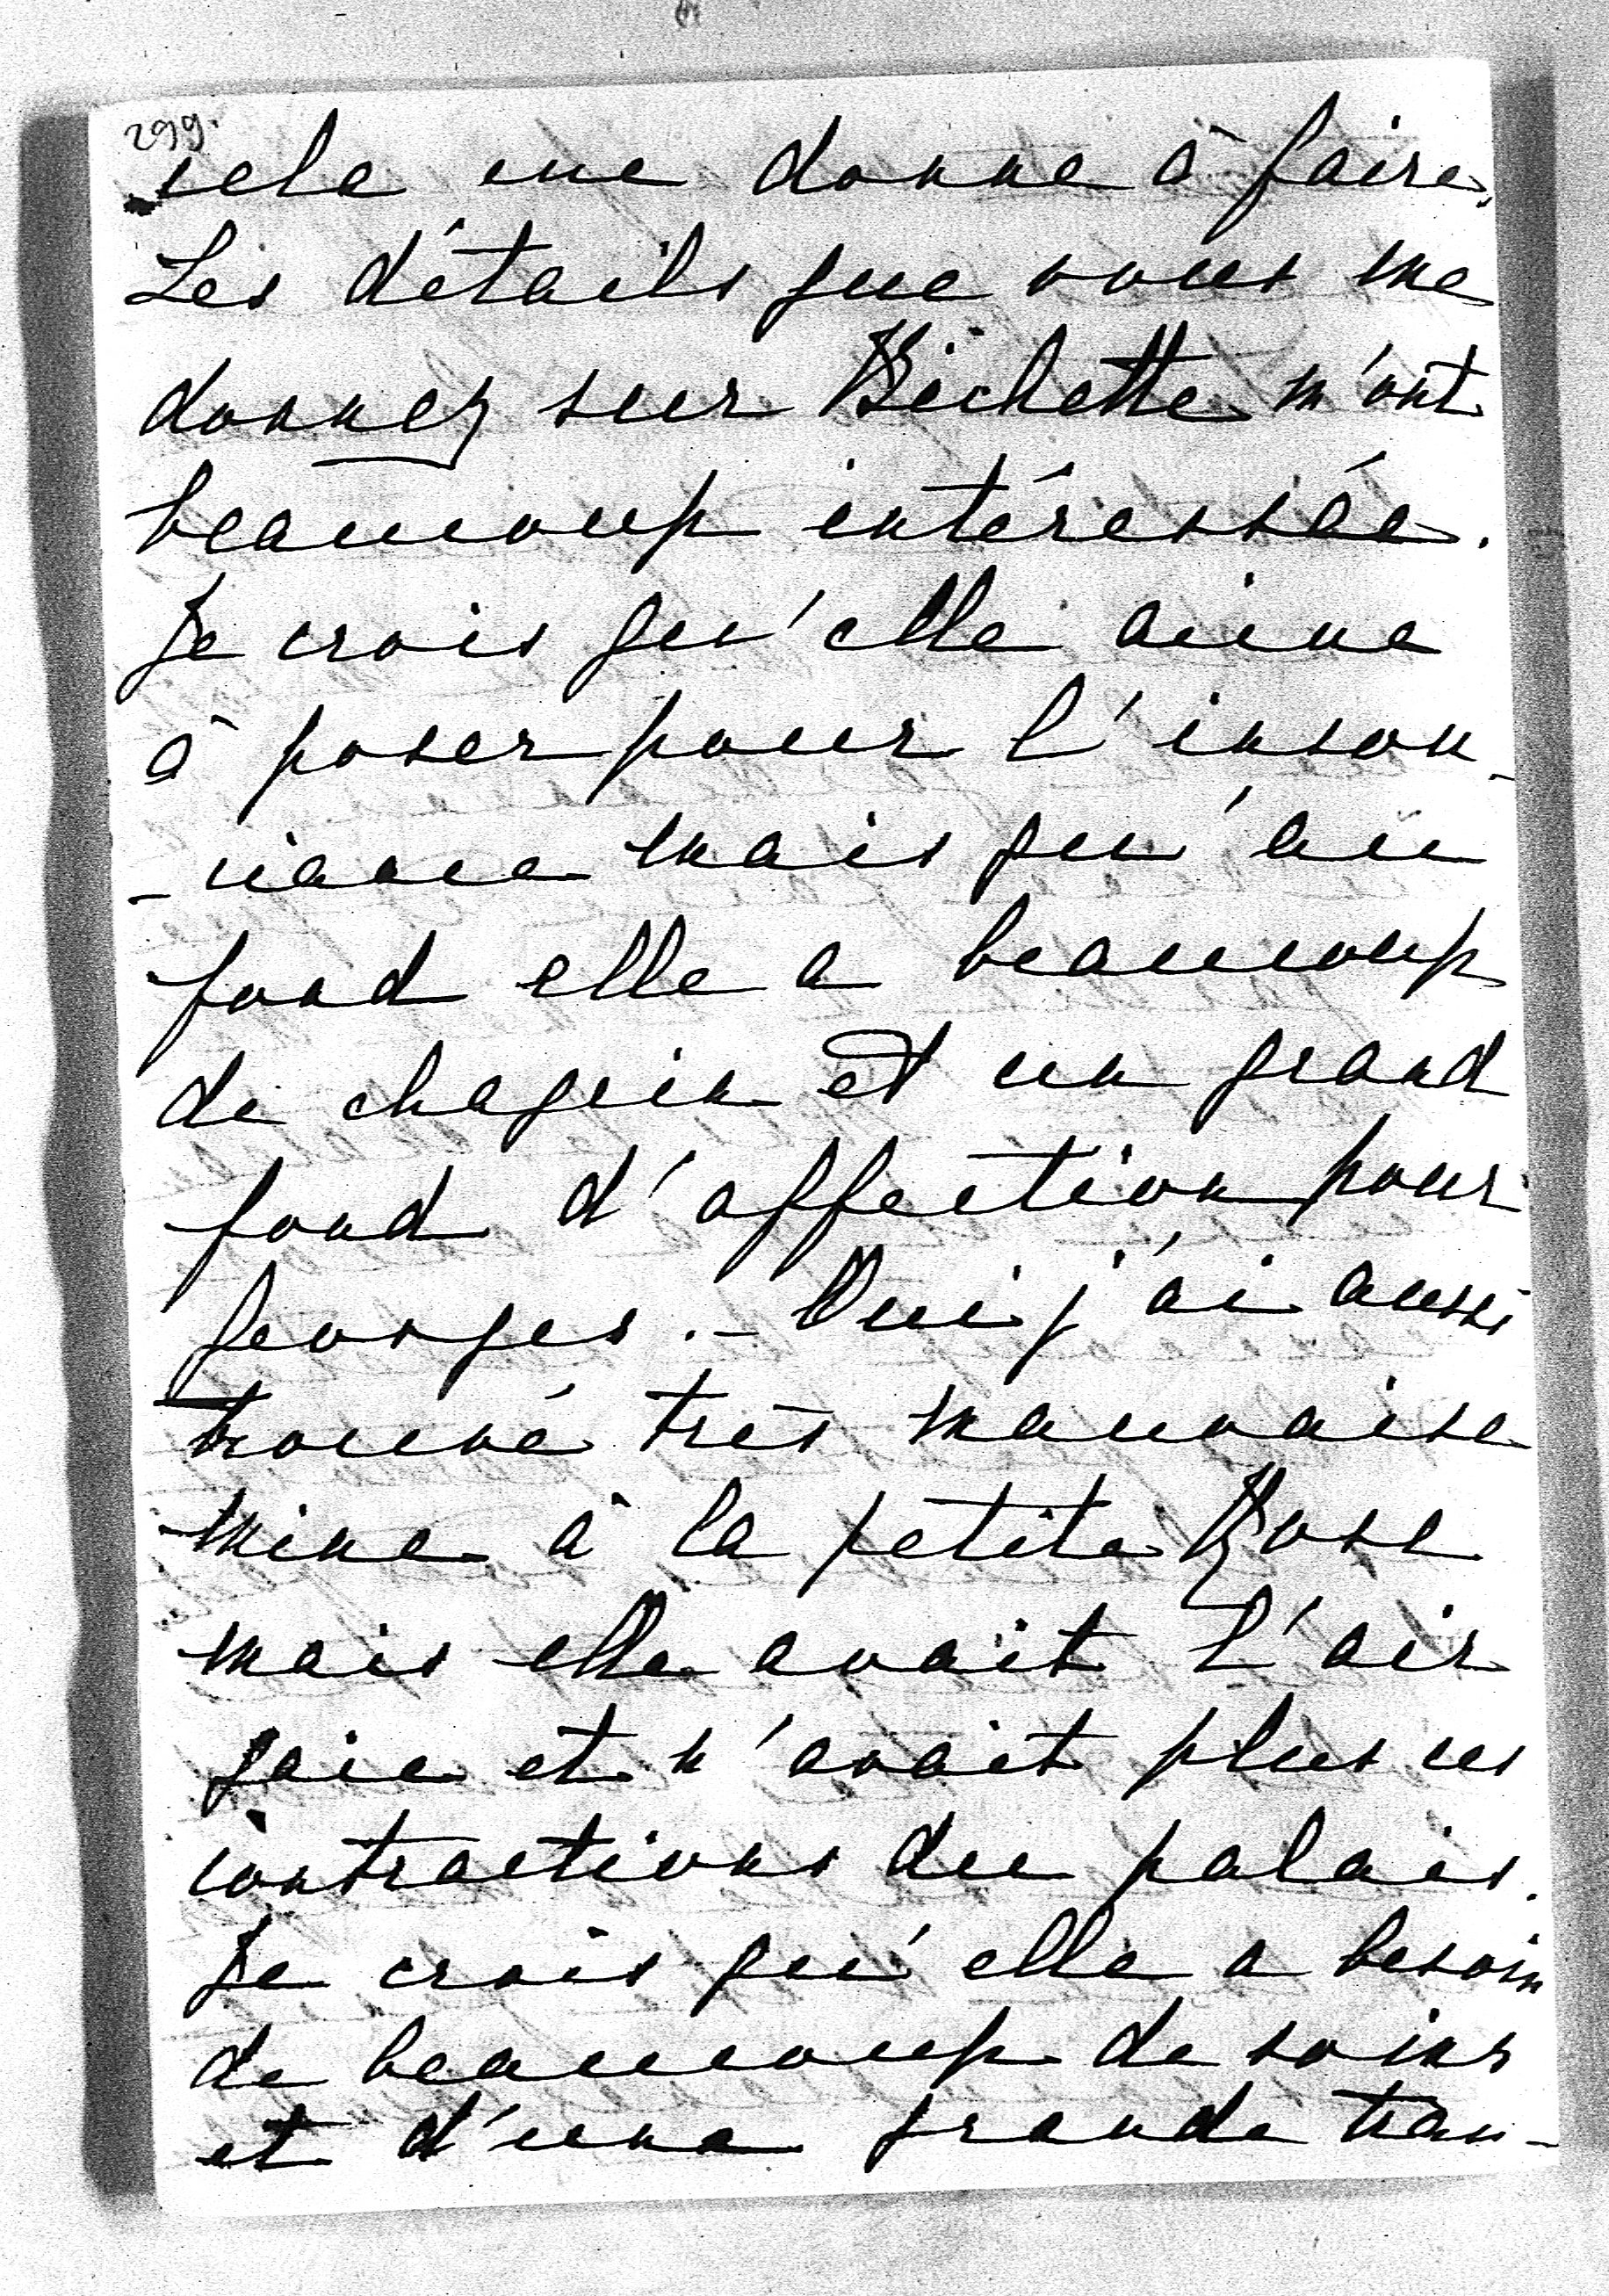 299.
cela me donne à faire,
Les détails que vous me
donnez sur Bichette m'ont
beaucoup intéressée.
Je crois qu'elle aime
à poser pour l'insou-
-ciance mais qu'au
fond elle a beaucoup
de chagrin et un grand
fond d'affection pour
Georges. - Oui j'ai aussi
trouvé très mauvaise
mine à la petite Rose
mais elle avait l'air
gaie et n'avait plus ces
contractions du palais.
Je crois qu'elle a besoin
de beaucoup de soins
et d'une grande tran-